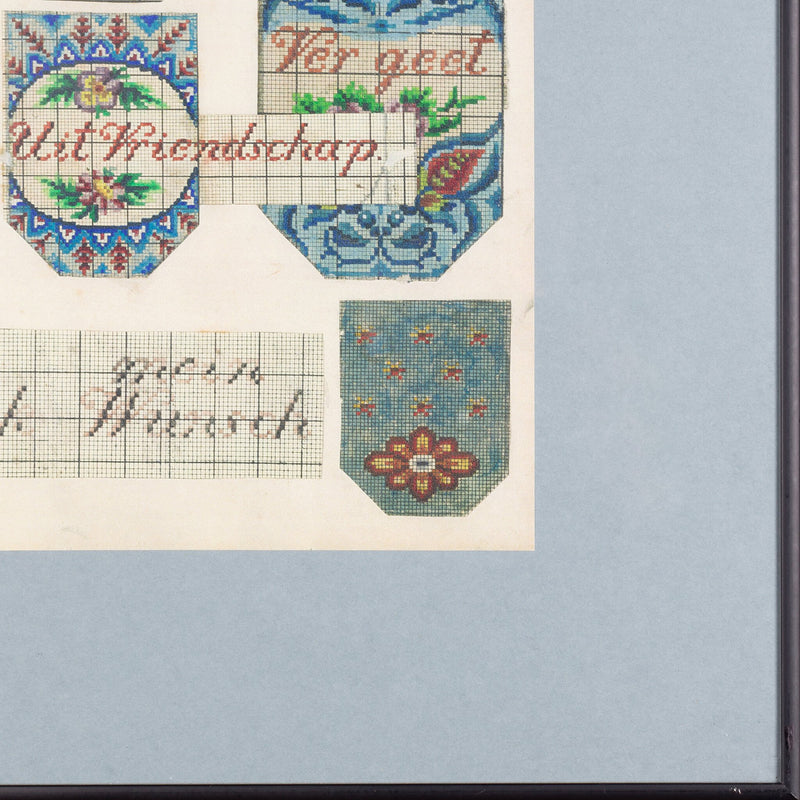 Ver geet
Uit Vriendschap.
mein
k Wunsch